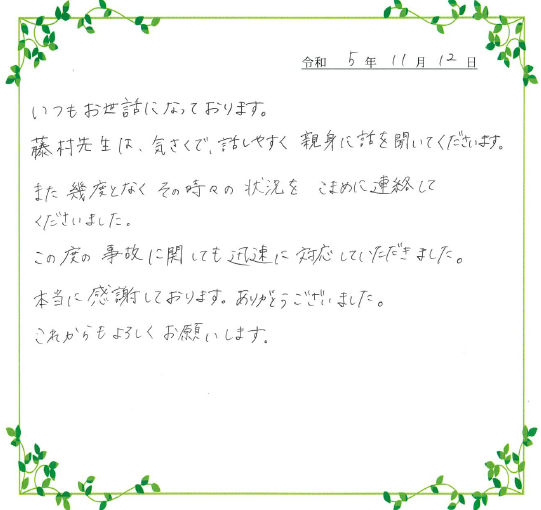 令和 5年 11月 12日
いつもお世話になっております。
藤村先生は、気さくで、話しやすく 親身に話を聞いてくださいます。
また 幾度となく その時々の 状況を こまめに連絡して
くださいました。
この度の 事故に関しても 迅速に 対応していただきました。
本当に感謝しております。ありがとうございました。
これからもよろしくお願いします。